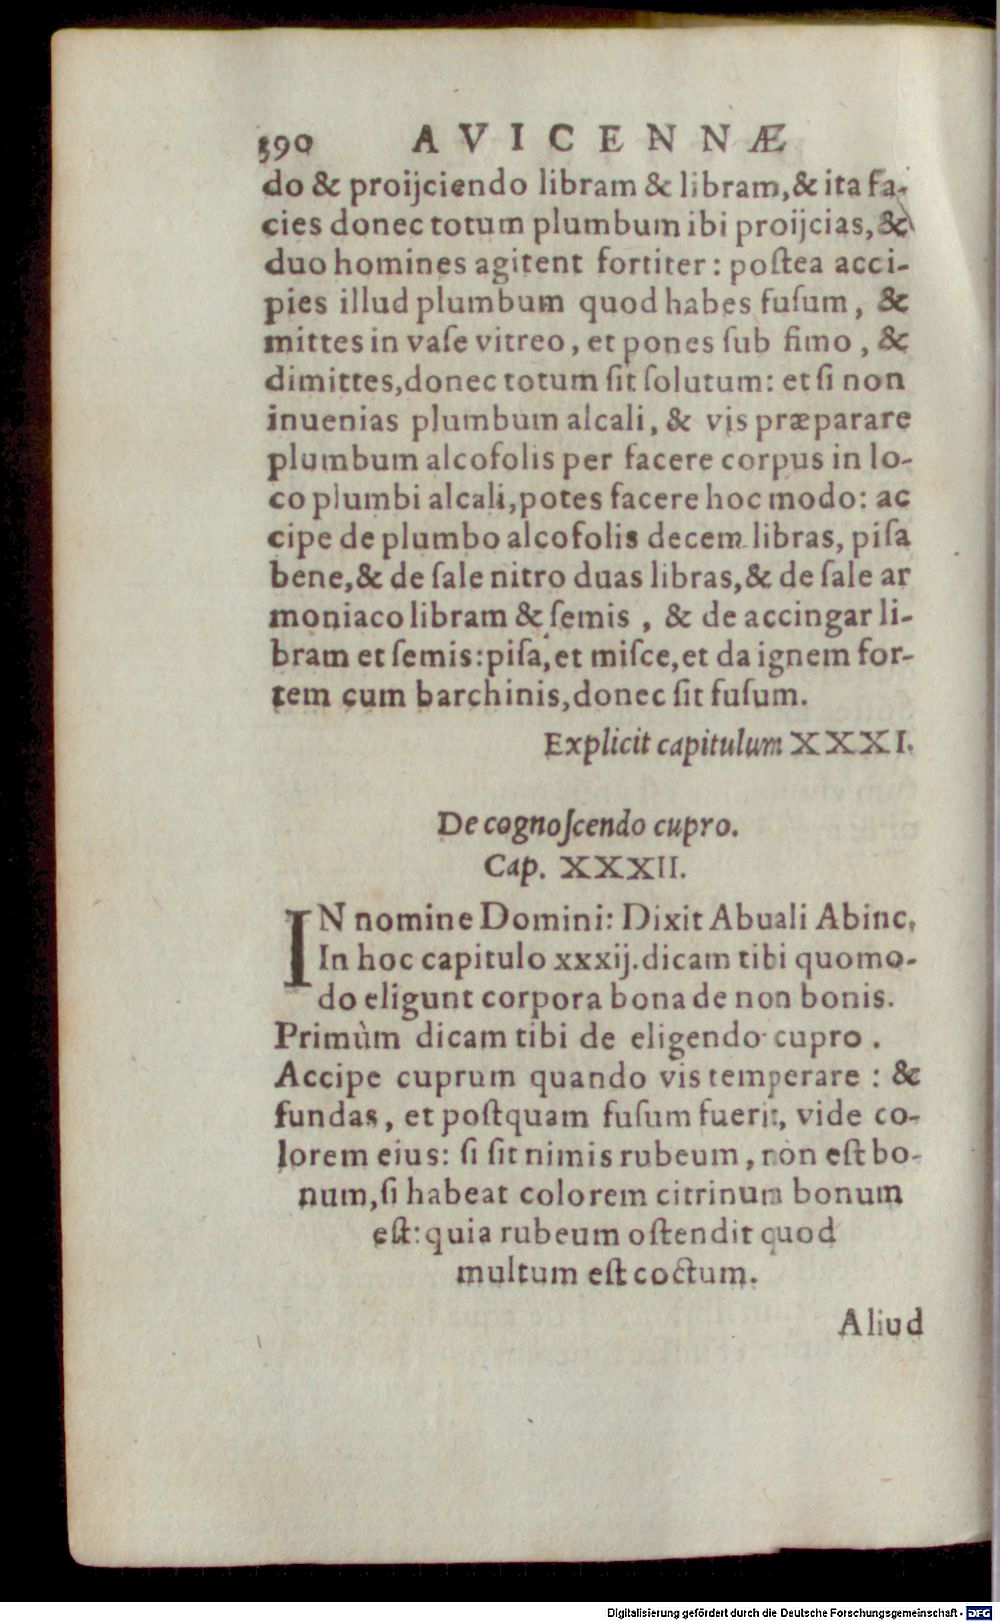 390 AVICENNÆ
do & proijciendo libram & libram, & ita fa-
cies donec totum plumbum ibi proijcias, &
duo homines agitent fortiter: poſtea acci-
pies illud plumbum quod habes fuſum, &
mittes in vaſe vitreo, et pones ſub fimo, &
dimittes, donec totum ſit ſolutum: et ſi non
inuenias plumbum alcali, & vis præparare
plumbum alcofolis per facere corpus in lo-
co plumbi alcali, potes facere hoc modo: ac
cipe de plumbo alcofolis decem libras, piſa
bene, & de ſale nitro duas libras, & de ſale ar
moniaco libram & ſemis, & de accingar li-
bram et ſemis: piſa, et miſce, et da ignem for-
tem cum barchinis, donec ſit fuſum.
Explicit capitulum XXXI.
De cognoſcendo cupro.
Cap. XXXII.
IN nomine Domini: Dixit Abuali Abinc,
In hoc capitulo xxxij. dicam tibi quomo-
do eligunt corpora bona de non bonis.
Primùm dicam tibi de eligendo cupro.
Accipe cuprum quando vis temperare: &
fundas, et poſtquam fuſum fuerit, vide co-
lorem eius: ſi ſit nimis rubeum, non eſt bo-
num, ſi habeat colorem citrinum bonum
eſt: quia rubeum oſtendit quod
multum eſt coctum.
Aliud
Digitalisierung gefördert durch die Deutsche Forschungsgemeinschaft - DFG